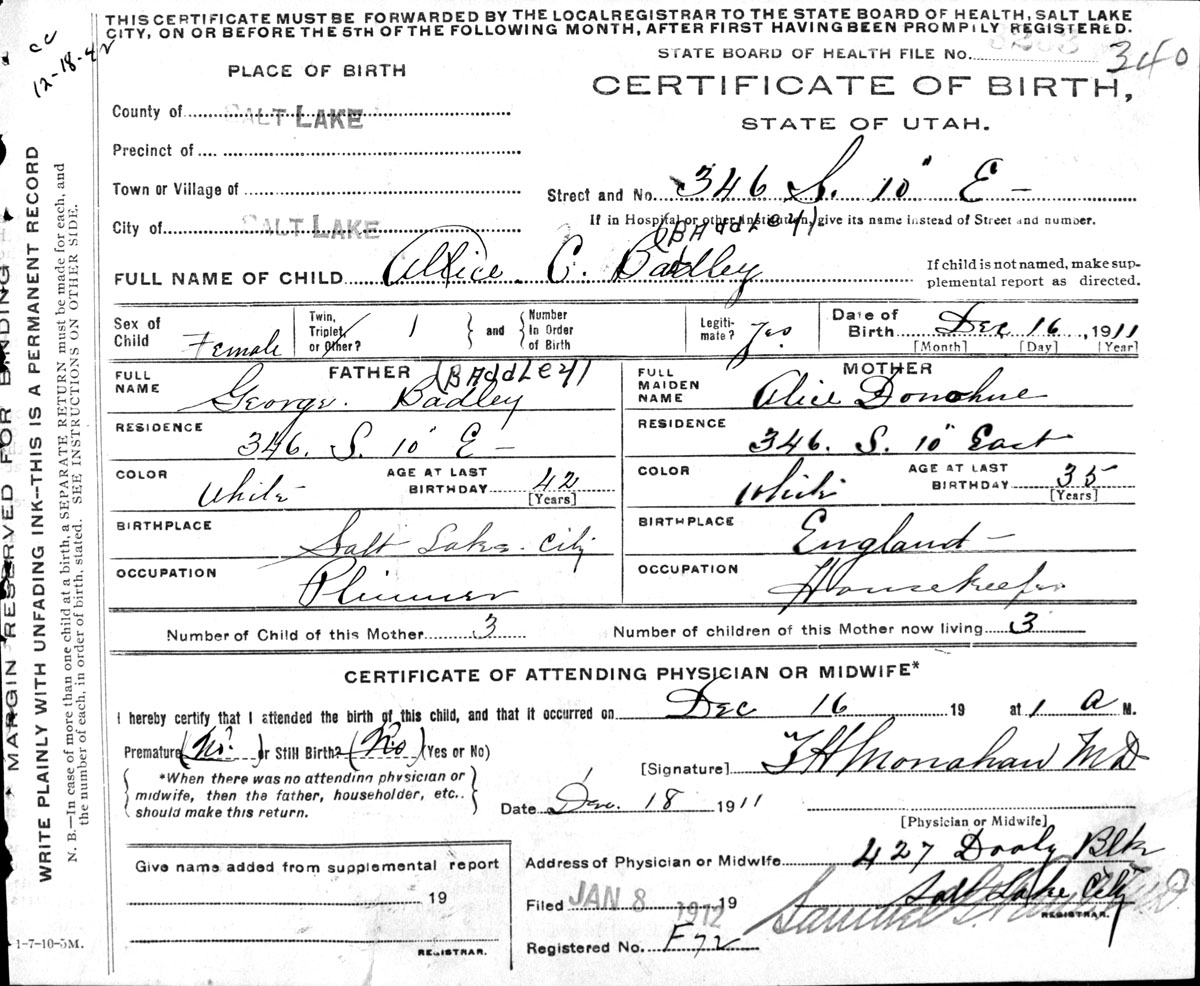 THIS CERTIFICATE MUST BE FORWARDED BY THE LOCAL REGISTRAR TO THE STATE BOARD OF HEALTH, SALT LAKE
CITY, ON OR BEFORE THE 5TH OF THE FOLLOWING MONTH, AFTER FIRST HAVING BEEN PROMPILY REGISTERED.
cc
12-18-42
STATE BOARD OF HEALTH FILE NO. 340
PLACE OF BIRTH
CERTIFICATE OF BIRTH,
STATE OF UTAH.
County of SALT LAKE
Precinct of
Town or Village of
Street and No. 346 S. 10" E -
If in Hospital or other Institution, give its name instead of Street and number.
City of SALT LAKE
(BAddLEY)
FULL NAME OF CHILD Allice C. Badley
If child is not named, make sup-
plemental report as directed.
Sex of Child Female
Twin, Triplet, or Other? 1
and
Number In Order of Birth
Legiti-mate? Yes
Date of Birth Dec 16, 1911
[Month] [Day] [Year]
FATHER (BAddLEY)
FULL NAME George. Badley
RESIDENCE 346. S. 10" E -
COLOR White
AGE AT LAST BIRTHDAY 42
[Years]
BIRTHPLACE Salt Lake City
OCCUPATION
MOTHER
FULL MAIDEN NAME Alice Donohue
RESIDENCE 346. S. 10" East
COLOR White
AGE AT LAST BIRTHDAY 35
[Years]
BIRTHPLACE England -
OCCUPATION Housekeeper
Number of Child of this Mother 3
Number of children of this Mother now living 3
CERTIFICATE OF ATTENDING PHYSICIAN OR MIDWIFE*
I hereby certify that I attended the birth of this child, and that it occurred on Dec 16 19 at 1 A M.
Premature (No.) or Still Birth? (No) (Yes or No)
*When there was no attending physician or
midwife, then the father, householder, etc..
should make this return.
[Signature] F H Monahan MD
Date Dec. 18 1911
[Physician or Midwife]
Give name added from supplemental report
19
REGISTRAR.
Address of Physician or Midwife 427 Dooly Blk
Salt Lake City
Filed JAN 8 1912 19
REGISTRAR.
Registered No. F72
1-7-10-5M.
MARGIN RESERVED FOR BINDING
WRITE PLAINLY WITH UNFADING INK--THIS IS A PERMANENT RECORD
N. B.—In case of more than one child at a birth, a SEPARATE RETURN must be made for each, and
the number of each, in order of birth, stated. SEE INSTRUCTIONS ON OTHER SIDE.